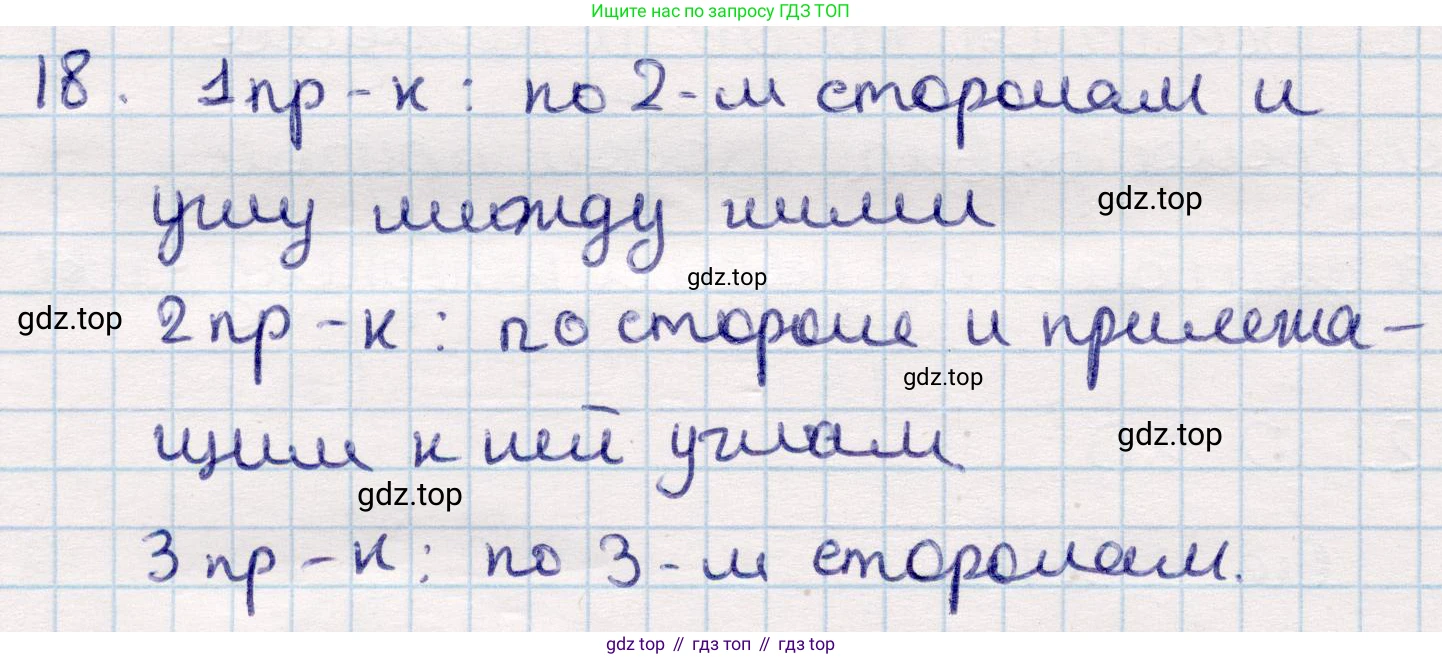 Ищите нас по запросу ГДЗ ТОП
18. 1 пр-к: по 2-м сторонам и
углу между ними
gdz.top
gdz.top
gdz.top 2 пр-к: по стороне и прилежа-
gdz.top
щим к ней углам
gdz.top
gdz.top
3 пр-к: по 3-м сторонам.
gdz top // гдз топ // гдз top